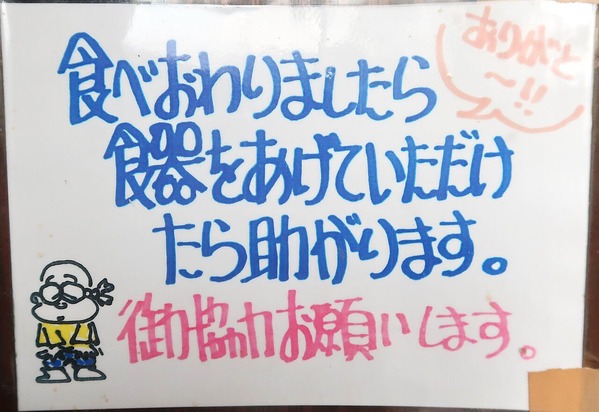 ありがと
〜!!
食べおわりましたら
食器をあげていただけ
たら助かります。
御協力お願いします。